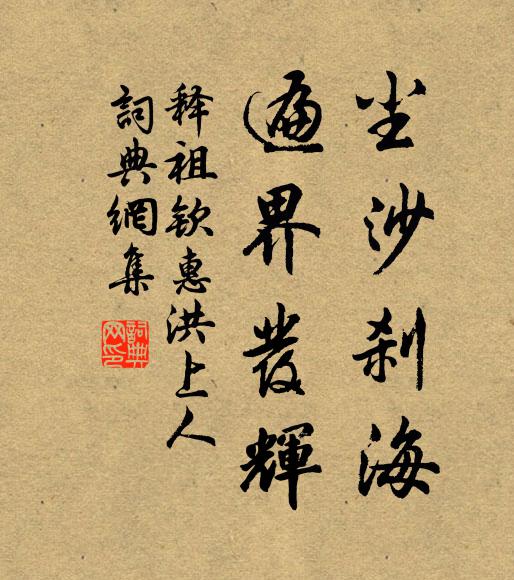 尘沙刹海
遍界發輝
释祖钦惠洪上人
詞典網集
詞典网印